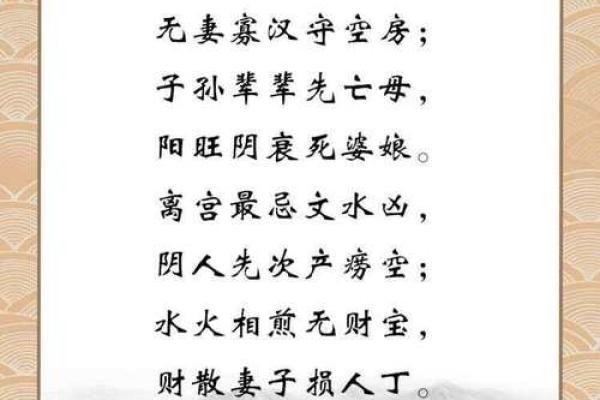 无妻寡汉守空房；
子孙辈辈先亡母，
阳旺阴衰死婆娘。
离宫最忌文水凶，
阴人先次产痨空；
水火相煎无财宝，
财散妻子损人丁。